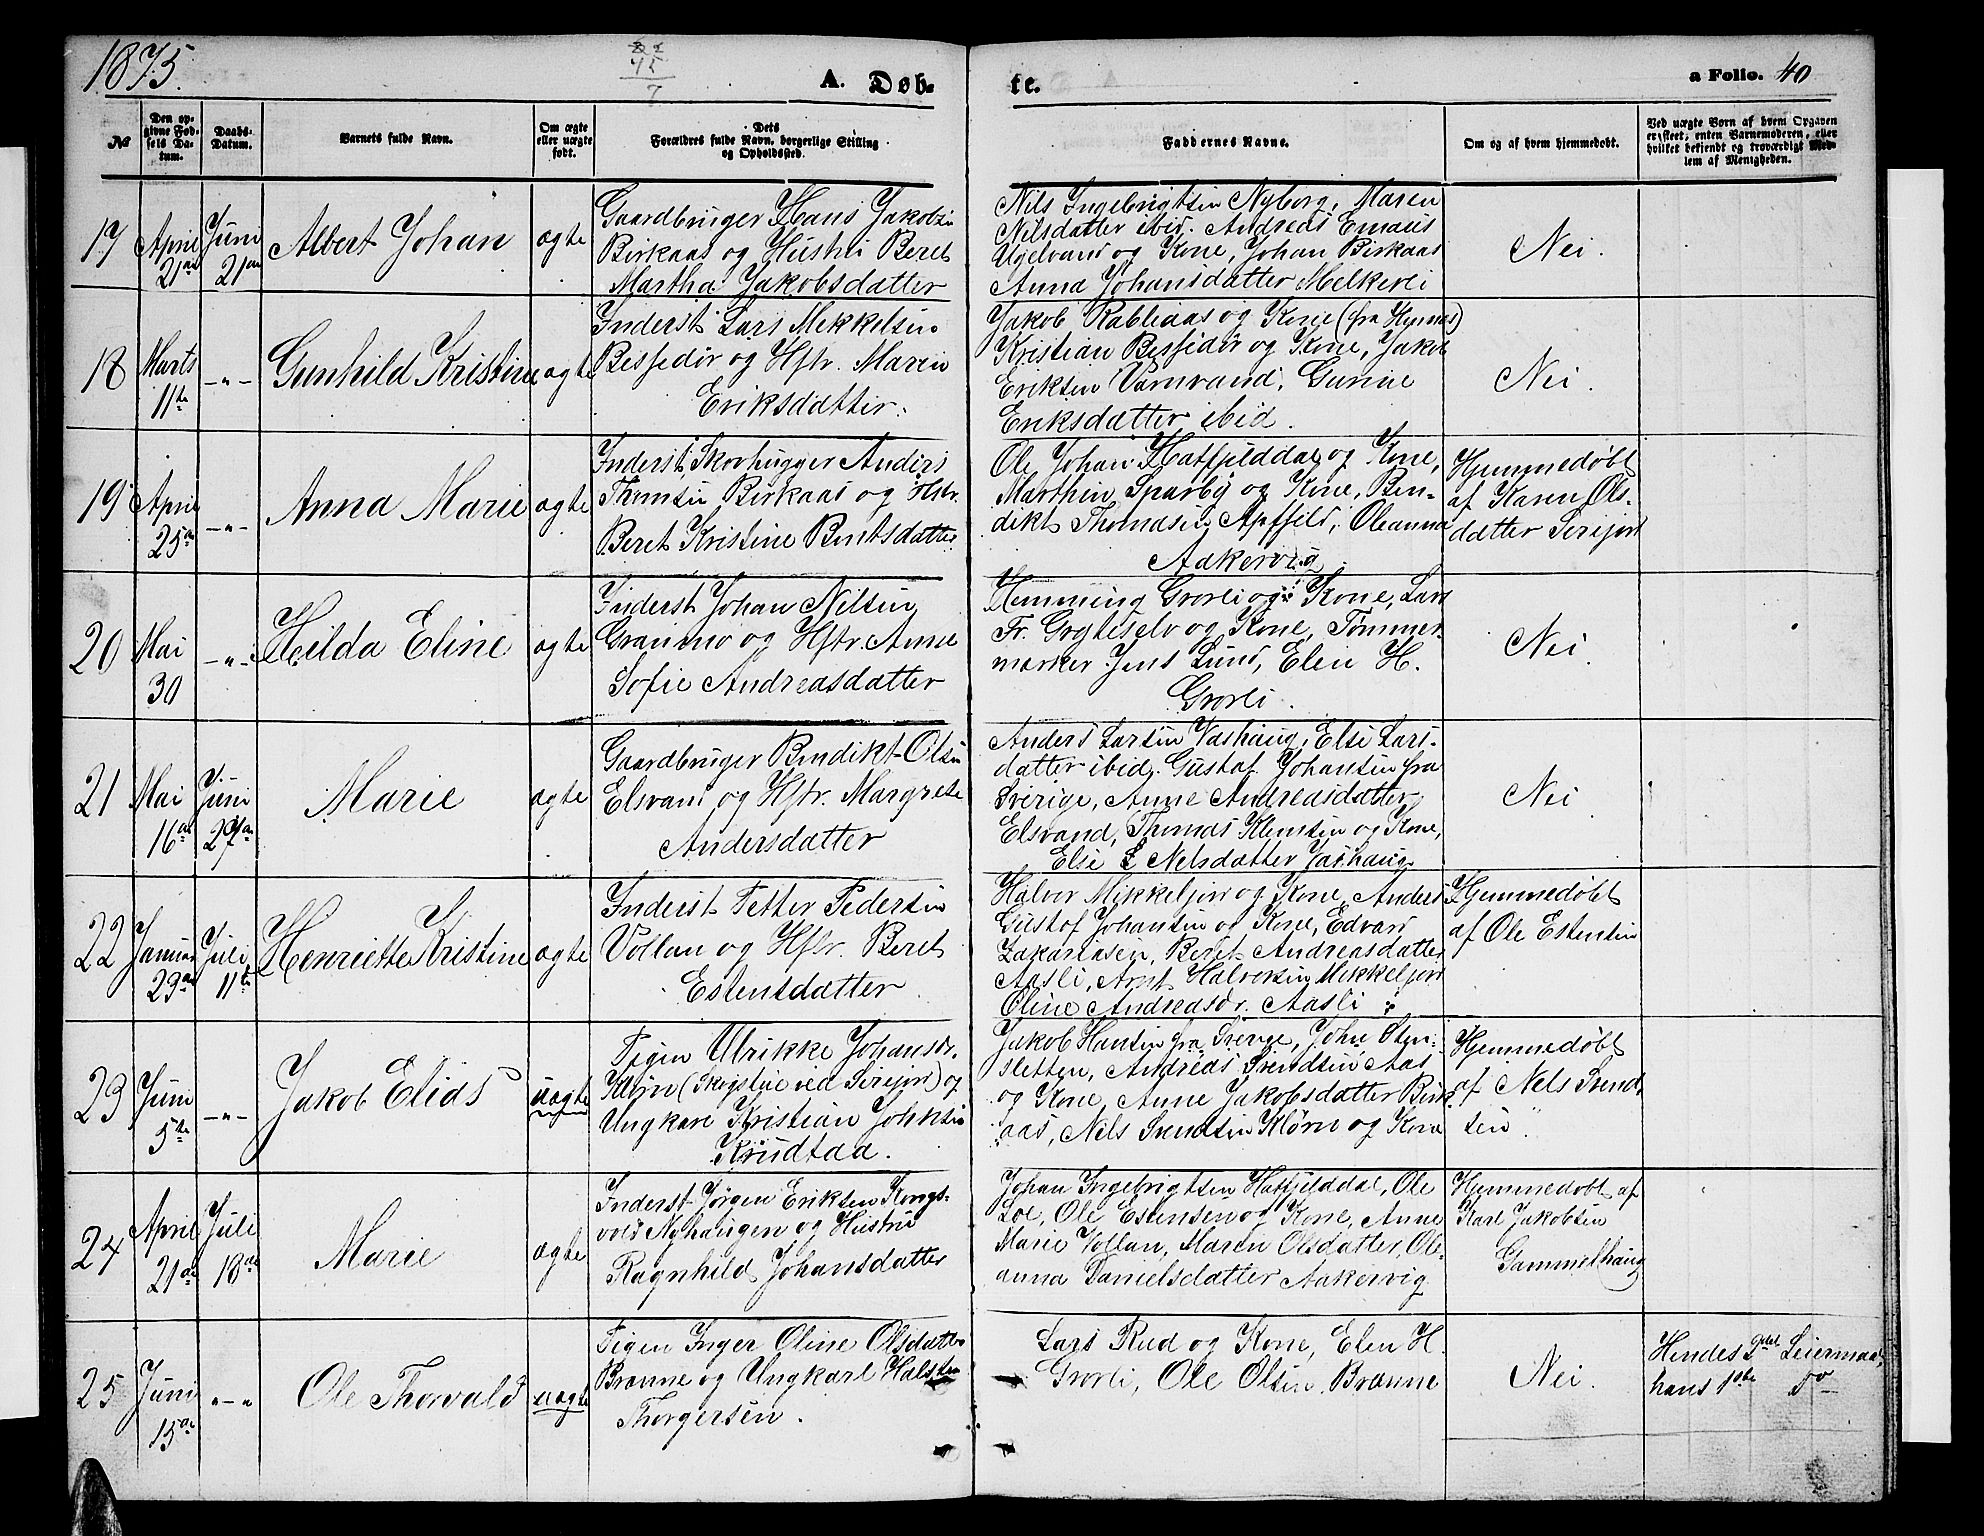 1875.
A. Døb-
te.
a Folio. 40
№
Den opgivne Fødsels Datum.
Daabs-Datum.
Barnets fulde Navn.
Om ægte eller uægte født.
Dets Forældres fulde Navn, borgerlige Stilling og Opholdssted.
Faddernes Navne.
Om og af hvem hjemmedøbt.
Ved uægte Børn af hvem Opgaven er skeet, enten Barnemoderen, eller hvilket bekjendt og troværdigt Medlem af Menigheden.
17
April 21de
Juni 21de
Albert Johan
ægte
Gaardbruger Hans Jakobsen
Birkaas og Hustru Beret
Martha Jakobsdatter
Nils Ingebrigtsen Nyborg, Maren
Nilsdatter ibid. Andreas Emaus
Ugelvand og Kone, Johan Birkaas
Anna Johansdatter Melkerli
Nei.
18
Marts 11te
-"-
Gunhild Kristine
ægte
Inderst Lars Mikkelsen
Bessedør og Hstr. Maren
Eriksdatter.
Jakob Kabliaas og Kone (fra Hemnes)
Kristian Bessedør og Kone, Jakob
Eriksen Varnvand, Gurine
Eriksdatter ibid.
Nei.
19
April 25de
-"-
Anna Marie
ægte
Inderst, Skovhugger Anders
Thomsen Birkaas og Hstr.
Beret Kristine Bentsdatter
Ole Johan Hatfjelddal og Kone,
Marthin Sparby og Kone, Ben-
dikt Thomasen Apffjeld, Oleanna
Aakervig
Hjemmedøbt
af Karen Ols-
datter Serijord
20
Mai 30
-"-
Hilda Eline
ægte
Inderst Johan Nilsen
Granmo og Hstr. Anne
Sofie Andreasdatter
Hemming Grovli og Kone, Lars
Fr. Gryteselv og Kone, Tømmer-
mærker Jens Lund, Elen H.
Grovli.
Nei.
21
Mai 16de
Juni 27de
Marie
ægte
Gaardbruger Bendikt Olsen
Elsvand og Hstr. Margrete
Andersdatter
Anders Larsen Vashaug, Else Lars-
datter ibid. Gustaf Johansen fra
Sverige, Anne Andreasdatter
Elsvand, Thomas Klemsen og Kone,
Else Nelsdatter Vashaug
Nei
22
Januar 29de
Juli 11te
Henriette Kristine
ægte
Inderst Petter Pedersen
Vollan og Hstr. Beret
Estensdatter
Halvor Mikkeljord og Kone, Anders
Gustof Johansen og Kone, Edvard
Zakariasen, Beret Andreasdatter
Aasli, Arnt Halvorsen Mikkeljord
Oline Andreasdr. Aasli
Hjemmedøbt
af Ole Estensen
23
Juni 5te
-"-
Jakob Elias
uægte
Pigen Ulrikke Johansdr.
Kløvn (Skogstue ved Serijord) og
Ungkarl Kristian Johnsen
Krudtaa.
Jakob Hansen fra Sverige, John Sten-
sletten, Andreas Svendsen Aas
og Kone, Anne Jakobsdatter Birk-
aas, Nils Svendsen Kløvn og Kone
Hjemmedøbt
af Nels Svend-
sen
24
April 21de
Juli 18de
Marie
ægte
Inderst Jørgen Eriksen Kongs-
vold Nyhaugen og Hustru
Ragnhild Johansdatter
Johan Ingebrigtsen Hatfjelddal, Ole
Loe, Ole Estensen og Kone, Anne
Marie Vollan, Maren Olsdatter, Ole-
anna Danielsdatter Aakervig
Hjemmedøbt af
Karl Jakobsen
Gammelhaug
25
Juni 15de
-"-
Ole Thorvald
uægte
Pigen Inger Oline Olsdatter
Brønne og Ungkarl Halsten
Thorgersen.
Lars Rud og Kone, Elen H.
Grovli, Ole Olsen Brønne
Nei.
Hendes 2det Leiermaal,
hans 1ste do